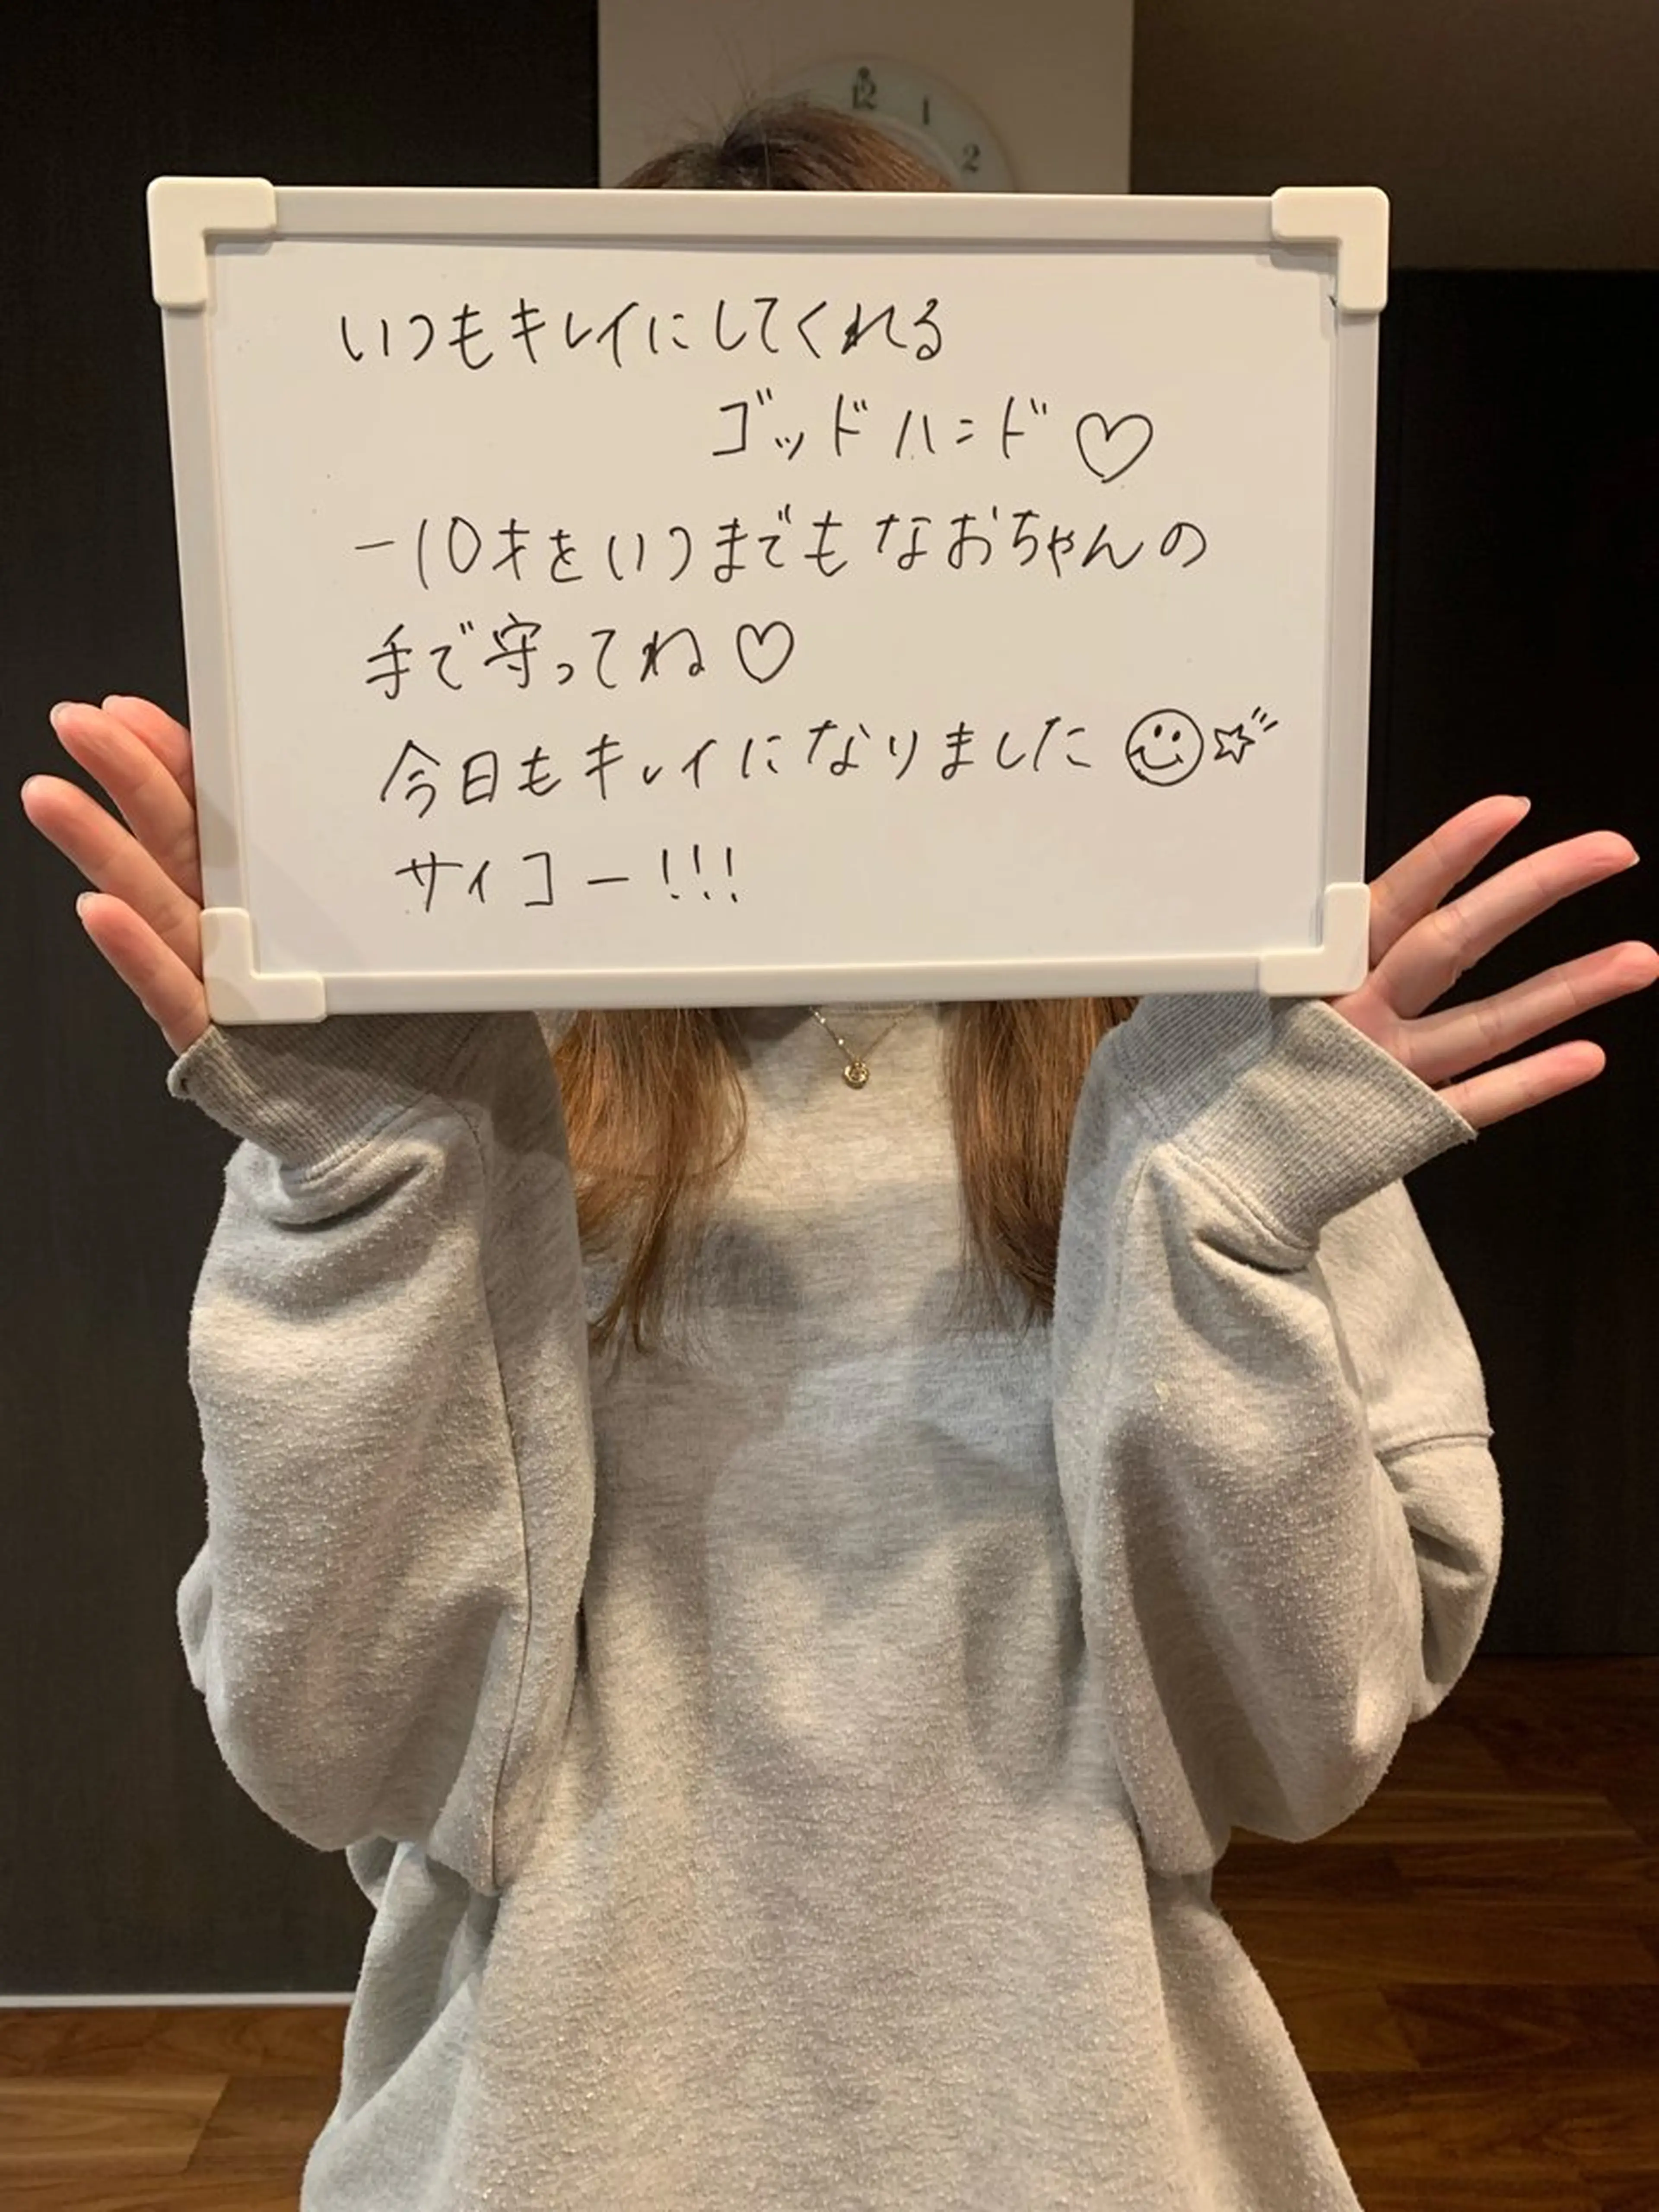 12 1 2
いつもキレイにしてくれる
ゴッドハンド♡
-10才をいつまでもなおちゃんの
手で守ってね♡
今日もキレイになりました☺☆
サイコー!!!